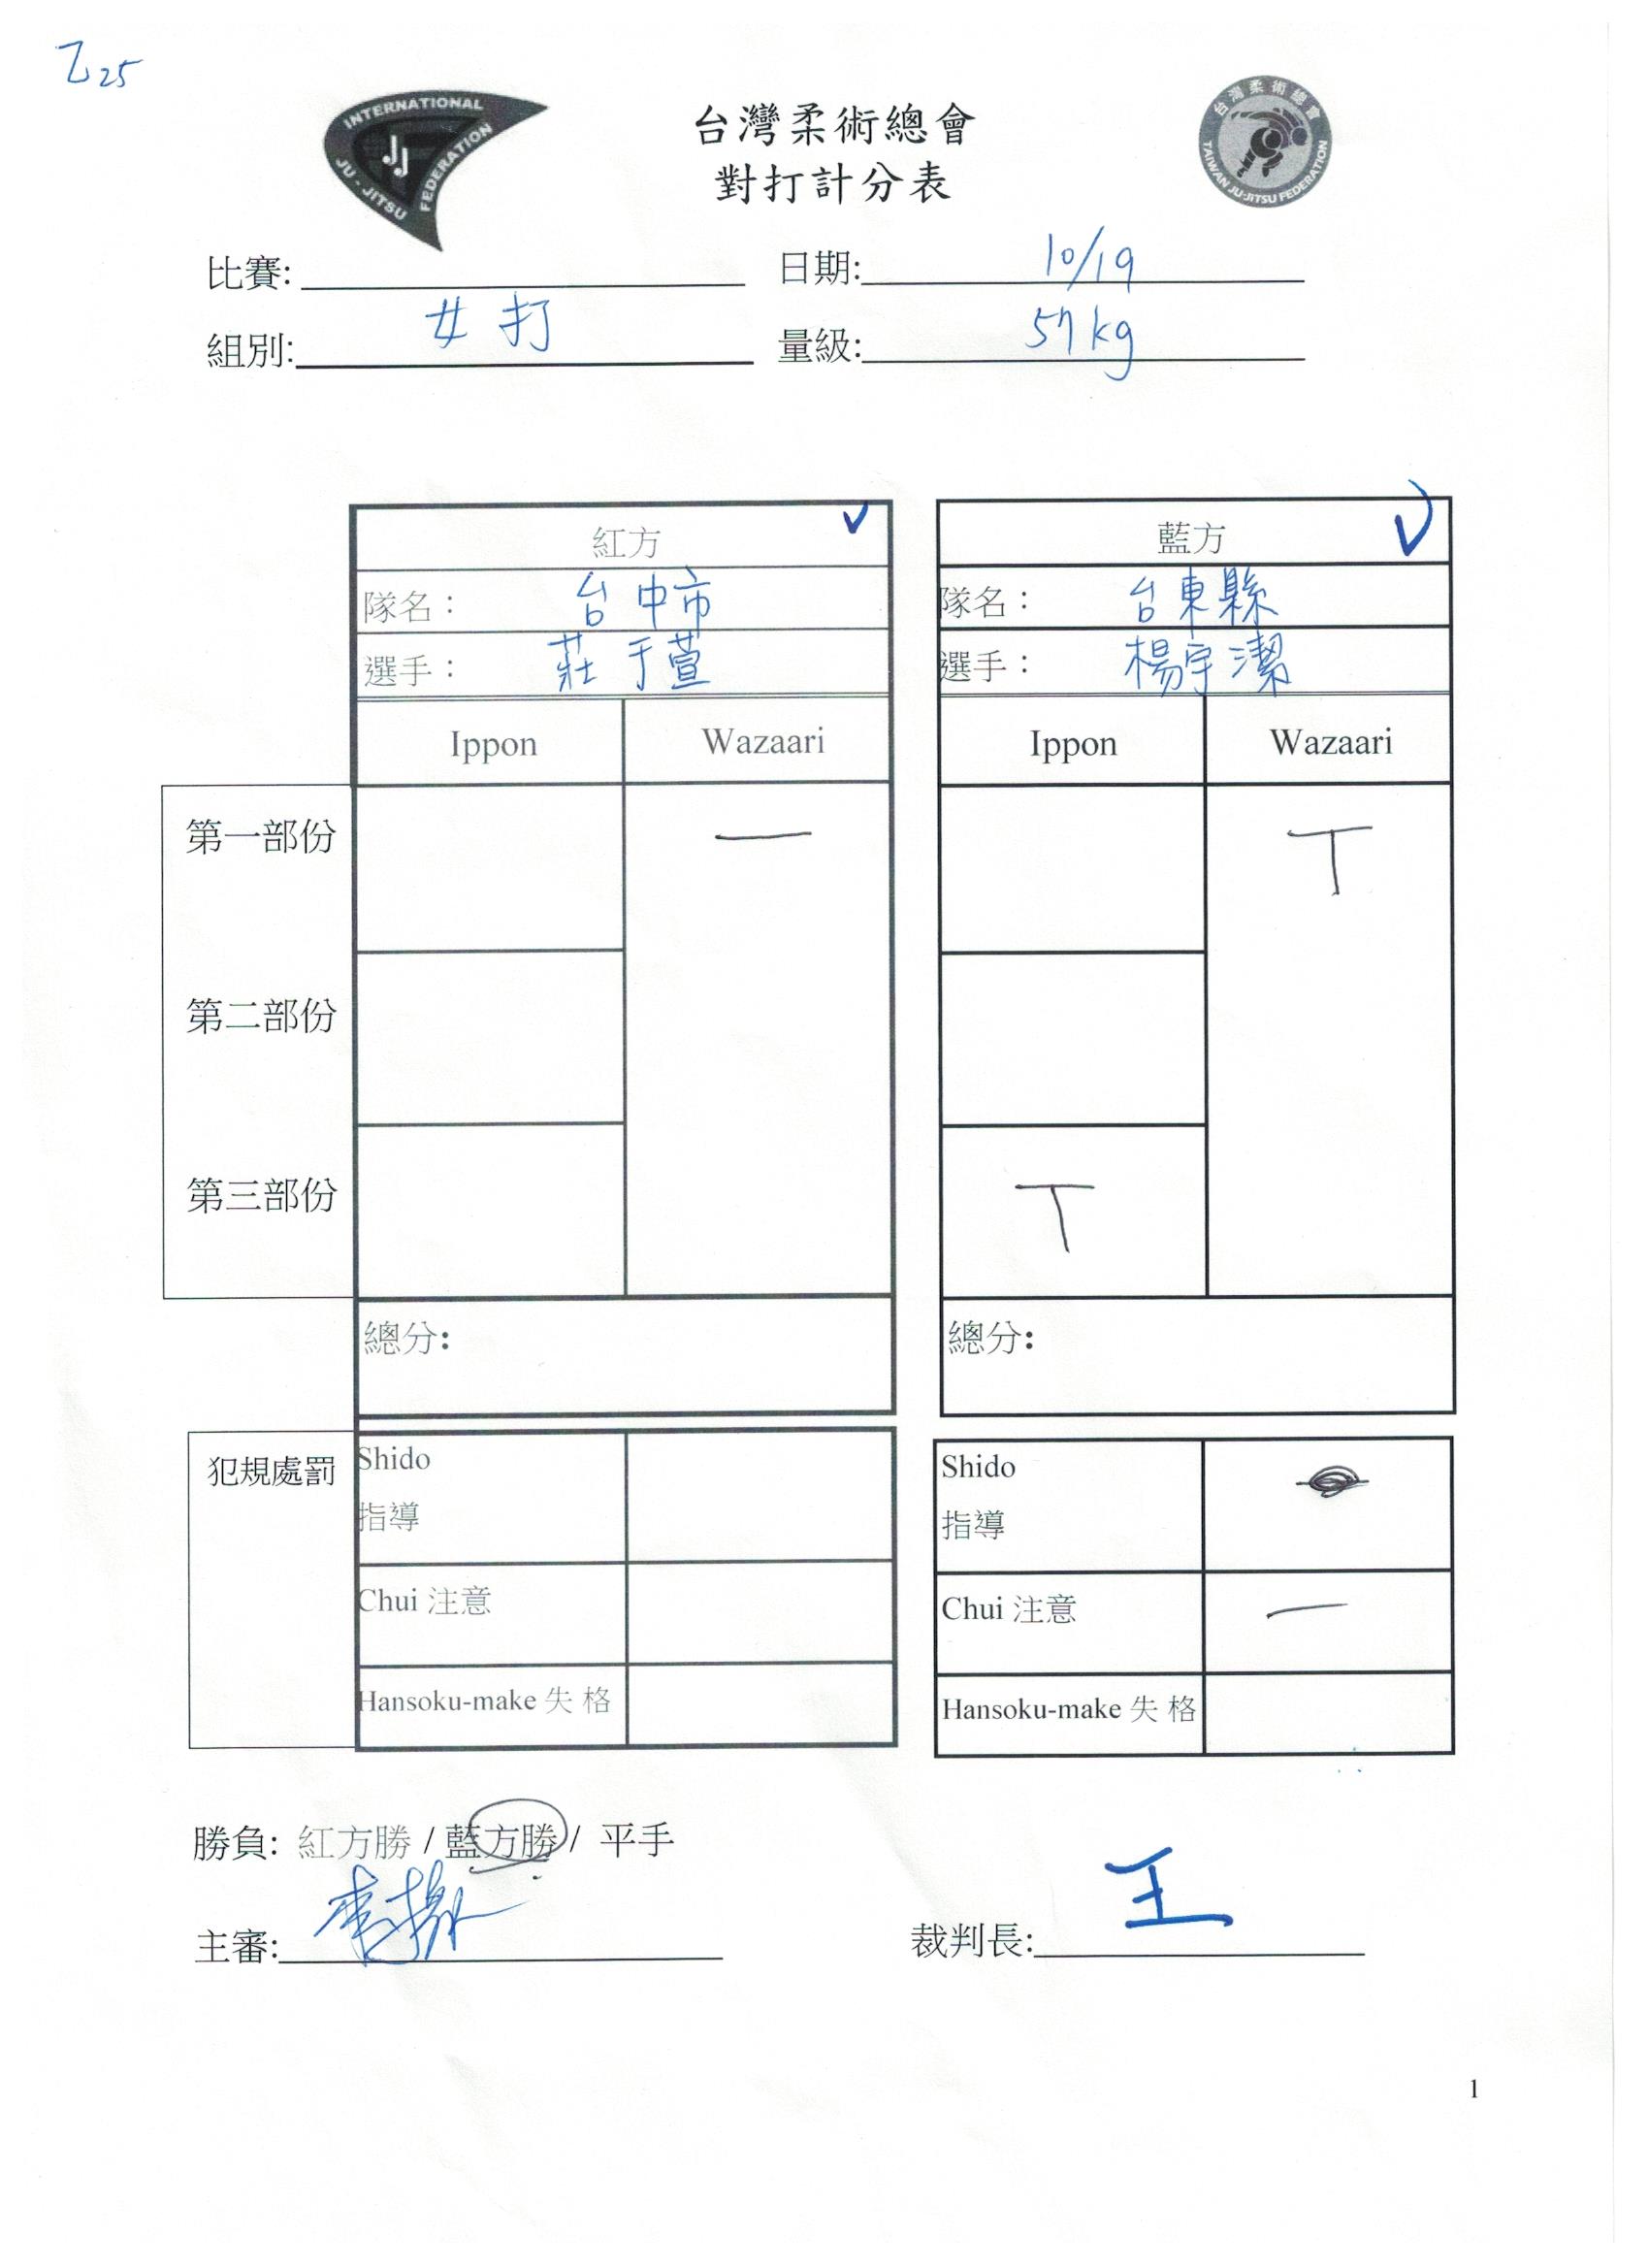 乙25
INTERNATIONAL JU-JITSU FEDERATION
JJ
台灣柔術總會
對打計分表
台灣柔術總會 TAIWAN JU-JITSU FEDERATION
比賽: 日期: 10/19
組別: 女打 量級: 57kg
紅方 藍方
隊名: 台中市 隊名: 台東縣
選手: 莊于萱 選手: 楊宇潔
Ippon Wazaari Ippon Wazaari
第一部份 一 T
第二部份
第三部份 T
總分: 總分:
犯規處罰 Shido Shido
指導 指導
Chui 注意 Chui 注意 一
Hansoku-make 失 格 Hansoku-make 失 格
勝負: 紅方勝 / 藍方勝 / 平手
主審: 裁判長: 王
1